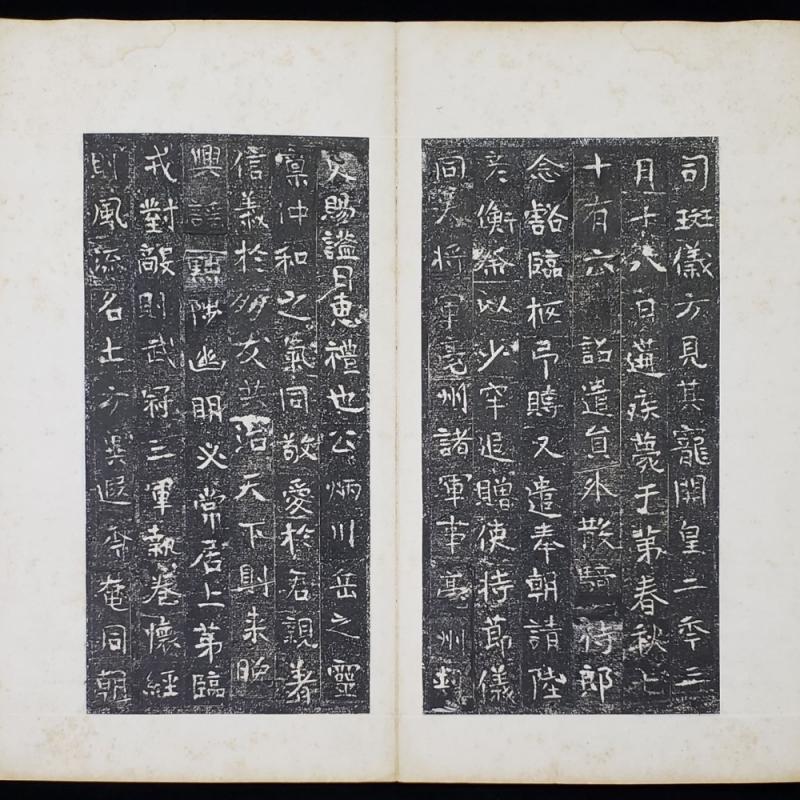 司斑儀方見其寵開皇二年三
月十八日遘疾薨于第春秋七
十有六詔遣員外散騎侍郎
念谿臨柩弔賻又遣奉朝請陸
彥衡祭以少牢追贈使持節儀
同大將軍亳州諸軍事亳州刺
史賜謚曰惠禮也公炳川岳之靈
稟沖和之氣同敬愛於君親著
信義於朋友天下則
興黜陟幽明必常居上第臨
戎對敵則武冠三軍執卷懷經
則風流名士方冀遐年奄同朝